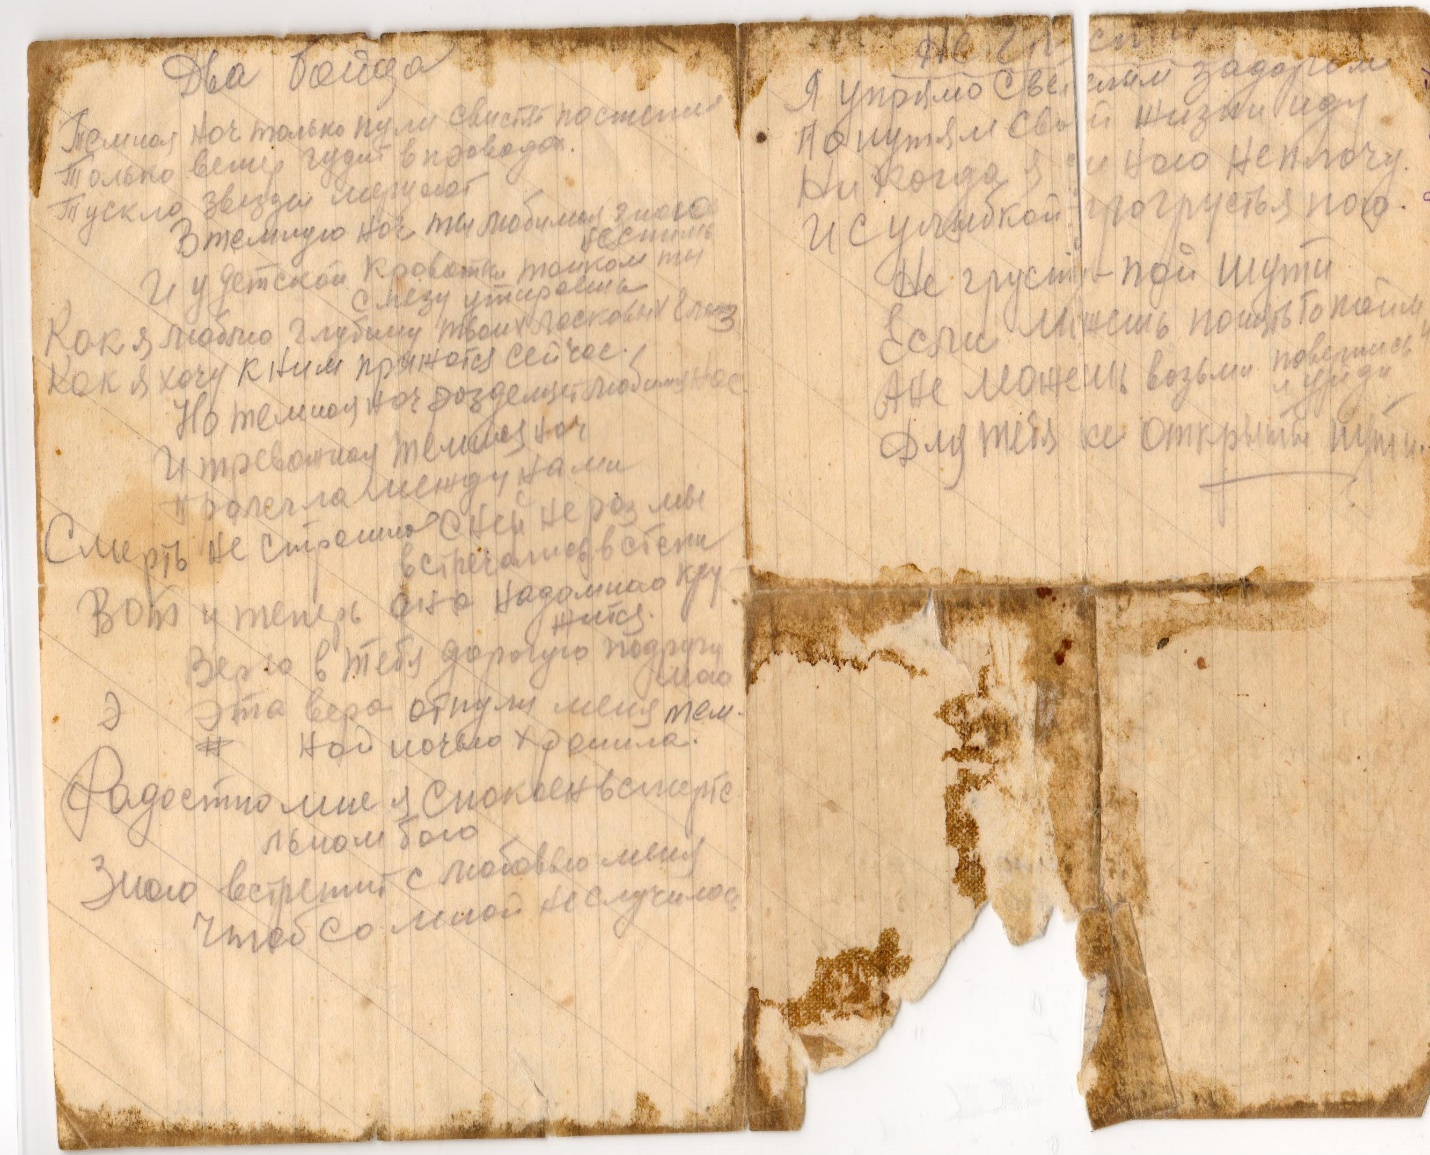 Два бойца
Темная ноч только пули свистят постепи
Только ветер гудит впроводах.
Тускло звезды мерцают
Втемную ноч ты любимая знаю
неспишь
И у детской кроватки тайком ты
слезу утираешь
Как я люблю глубину твоих ласковых глаз
Как я хочу кним прижатся сейчас.
Но темная ноч разделяет любимая нас
И тревожная темная ноч
пролегла между нами
Смерть не страшна сней нераз мы
встречались встепи
Вот и теперь она надамною кру-
жится.
Верю в тебя дорогую подругу
мою
Э Эта вера отпули меня тем-
ной ночью хранила.
Радостно мне я спокоен всмерте
льном бою
Знаю встретит с любовью меня
Чтоб со мной неслучилось
Не грусти
Я упрямо свеселым задором
По путям своей жизни иду
Ни когда я ни кого неплачу.
И с улыбкой прогрусть я пою.
Не грусти - пой шути
Если можешь понять то пойми
А не можешь возьми повернись
и уйди
Для тебя все открыты пути.